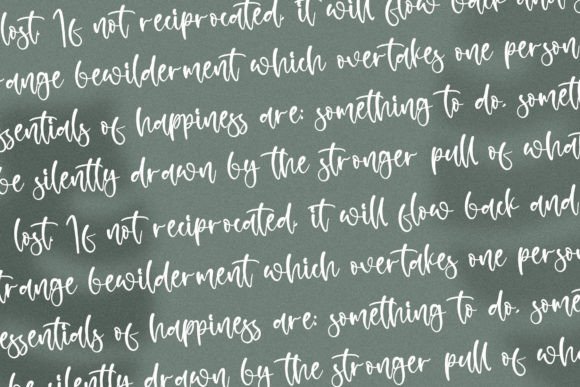 lost. If not reciprocated, it will flow back and
range bewilderment which overtakes one person
essentials of happiness are: something to do, somet
be silently drawn by the stronger pull of what
lost. If not reciprocated, it will flow back and
trange bewilderment which overtakes one person
essentials of happiness are: something to do, some
be silently drawn by the stronger pull of what